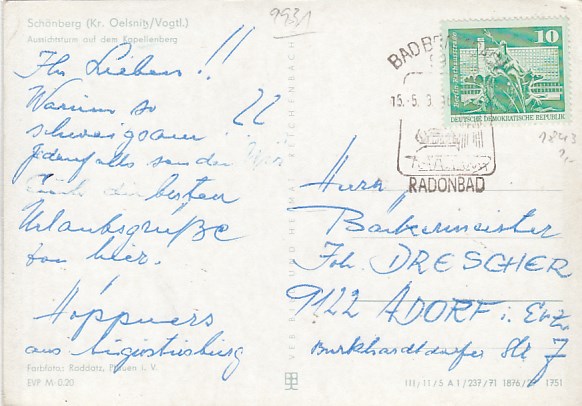 Schönberg (Kr. Oelsnitz/Vogtl.)
Aussichtsturm auf dem Kapellenberg
Ihr Lieben!!
Warum so
schweigsam ??
Jedenfalls senden wir
Euch die besten
Urlaubsgrüße
von hier.
aus
Farbfoto: Raddatz, Plauen i. V.
EVP M 0.20
9931
VEB BILD UND HEIMAT REICHENBACH
BAD BR
15.-5.
RADONBAD
10
DEUTSCHE DEMOKRATISCHE REPUBLIK
1843
Herrn
Bäckermeister
Joh. DRESCHER
9122 ADORF i. Erzg.
Burkhardtsdorfer Str 7
III/11/5 A 1/237/71 1876/2 1751